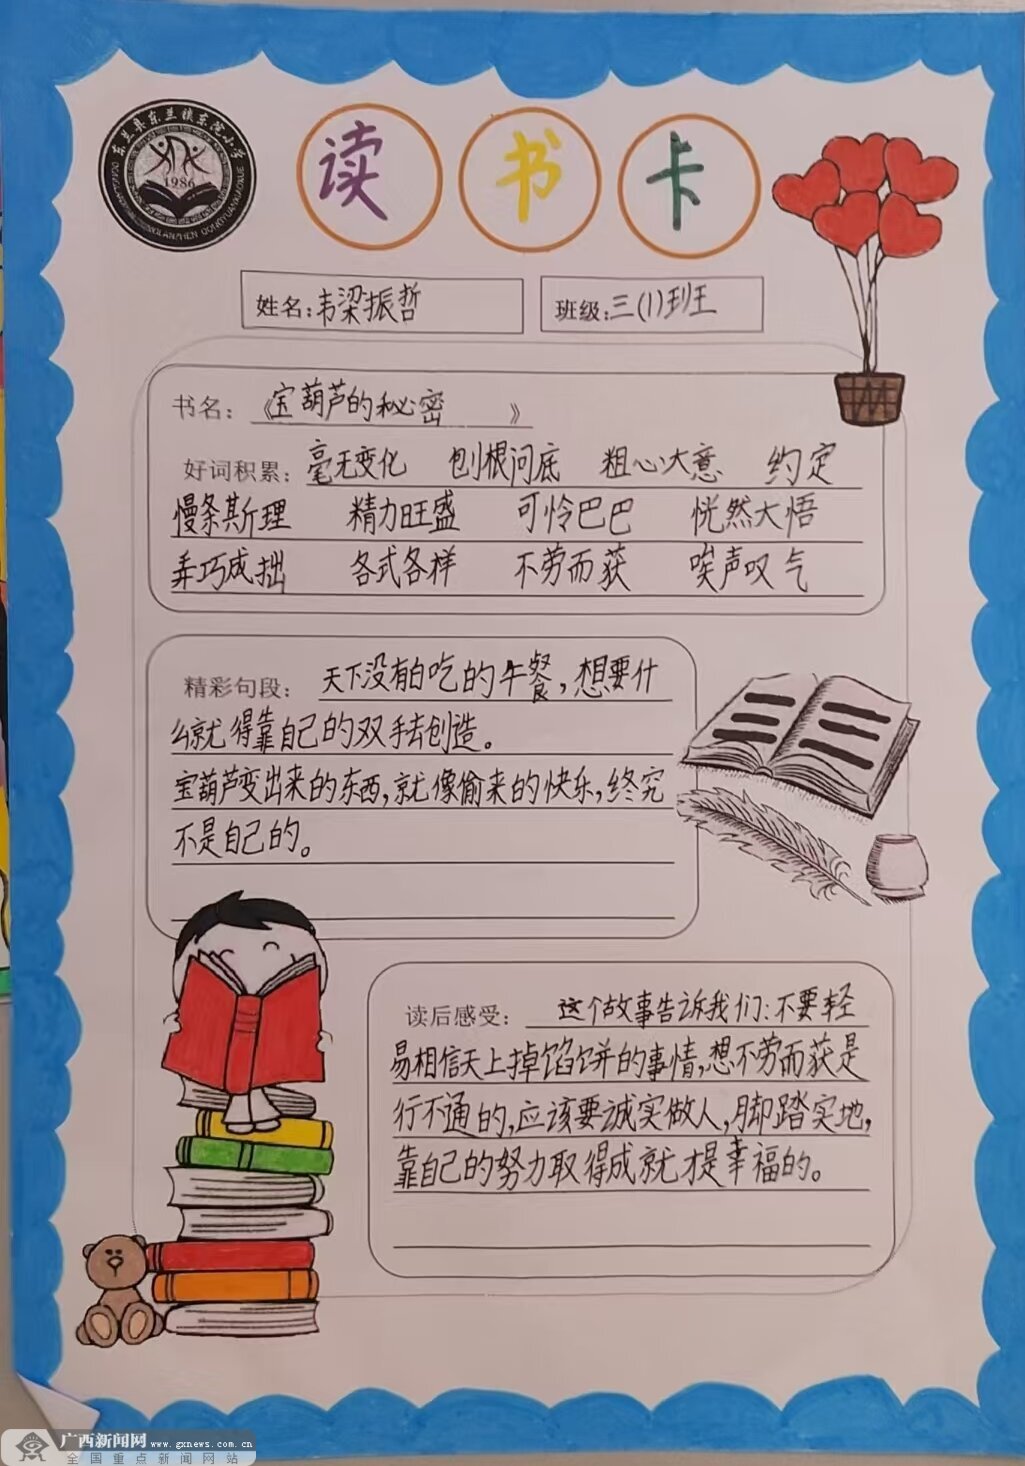 东兰县东兰镇东院小学
1986
读书卡
姓名:韦梁振哲
班级:三(1)班
书名:《宝葫芦的秘密》
好词积累:毫无变化 刨根问底 粗心大意 约定
慢条斯理 精力旺盛 可怜巴巴 恍然大悟
弄巧成拙 各式各样 不劳而获 唉声叹气
精彩句段: 天下没有白吃的午餐,想要什
么就得靠自己的双手去创造。
宝葫芦变出来的东西,就像偷来的快乐,终究
不是自己的。
读后感受: 这个故事告诉我们:不要轻
易相信天上掉馅饼的事情,想不劳而获是
行不通的,应该要诚实做人,脚踏实地,
靠自己的努力取得成就才是幸福的。
广西新闻网 www.gxnews.com.cn
全国重点新闻网站